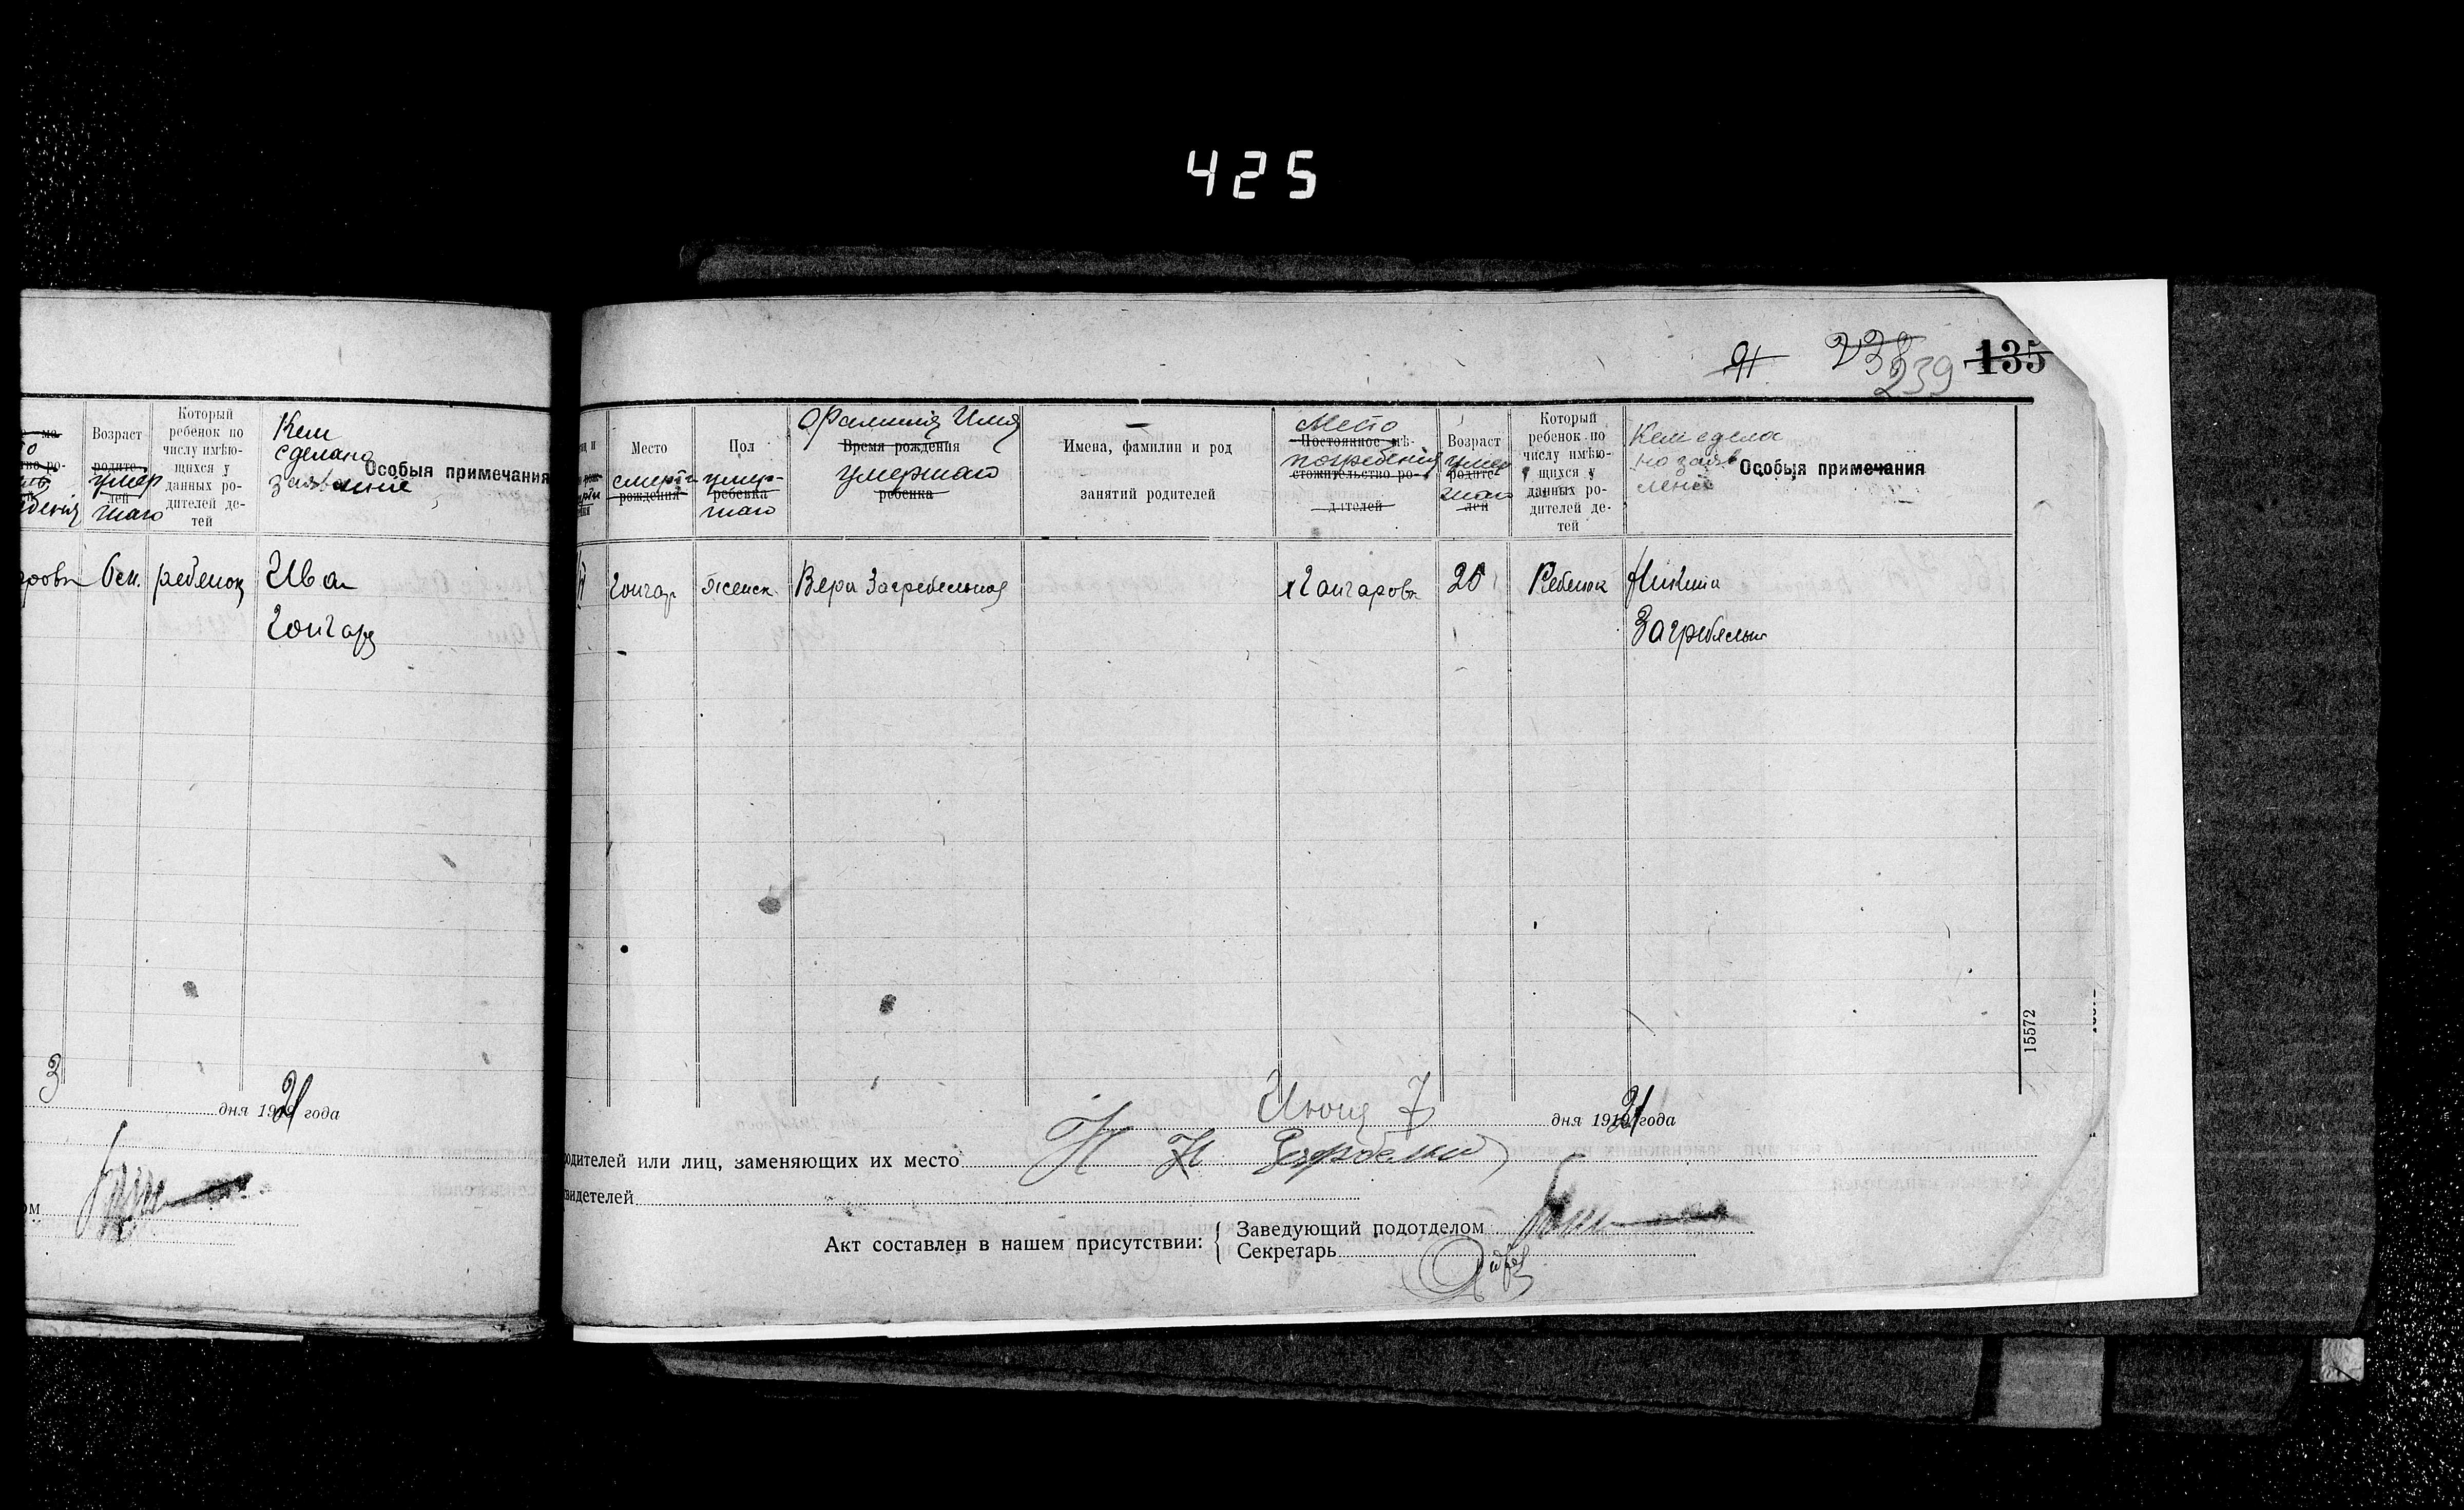 425
91 238 239 135
Возраст
умер
шаго
Который
ребенок по
числу имѣю-
щихся у
данных ро-
дителей де-
тей
Кем
сделано
заявление
Особыя примечания
ребенок
Ива
Гонгар
3
дня 1921 года
Место
смерти
рождения
Пол
умер-
ребенка
шаго
Фамилия Имя
Время рождения
умершаго
ребенка
Имена, фамилии и род
занятий родителей
Место
Постоянное мѣ-
погребения
стожительство ро-
дителей
Возраст
умер
родите-
шаго
лей
Который
ребенок по
числу имѣю-
щихся у
данных ро-
дителей де-
тей
Кем сдела
но заяв
ление
Особыя примечания
Гонгар Женск. Вера Загребельная Гангаровк 20 Ребенок Никита
Загребельн
15572
Июня 7 дня 1921 года
родителей или лиц, заменяющих их место
свидетелей
Акт составлен в нашем присутствии:
Заведующий подотделом
Секретарь